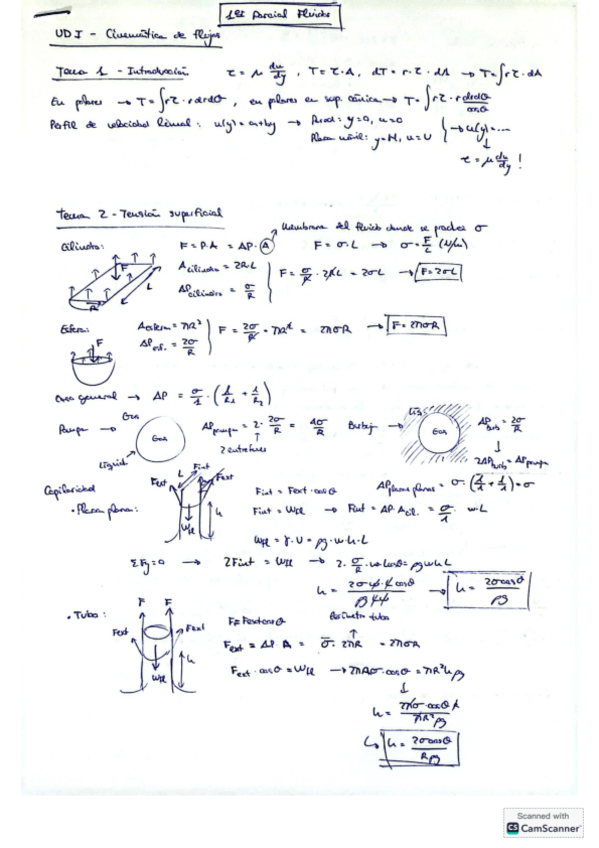 1er Parcial Fluidos
UD I - Cinemática de flujos
Tema 1 - Introducción τ = μ du/dy , T = τ·A, dT = r·τ·dA → T = ∫rτ·dA
En polares → T = ∫rτ·rdrdθ , en polares en sup. cónica → T = ∫rτ·r drdθ/cosθ
Perfil de velocidad lineal: u(y) = a+by → Pared: y=0, u=0
Placa móvil: y=H, u=U → u(y)=...
τ = μ du/dy !
Tema 2 - Tensión superficial
Membrana del fluido donde se produce σ
Cilindro: F = P·A = ΔP·A F = σ·L → σ = F/L (N/m)
F
L
R
A cilindro = 2R·L
ΔP cilindro = σ/R
F = σ/R · 2RL = 2σL → F = 2σL
Esfera: A esfera = πR²
ΔP esf. = 2σ/R
F = 2σ/R · πR² = 2πσR → F = 2πσR
F
Caso general → ΔP = σ/1 · (1/R1 + 1/R2)
Pompa → Gas
Gas
Líquido
ΔP pompa = 2 · 2σ/R = 4σ/R
2 interfases
Burbuja → Líq.
Gas
ΔP burb = 2σ/R
2ΔP burb = ΔP pompa
Capilaridad
· Placa plana:
L
Fint
Fext
Fext
Wfl
h
Fint = Fext·cosθ
ΔP placas planas = σ·(1/1 + 1/1) = σ
Fint = Wfl → Fint = ΔP·A cil. = σ/1 · w·L
Wfl = γ·V = ρg·w·h·L
ΣFy=0 → 2Fint = Wfl → 2·σ/R·w·L cosθ = ρg w h L
h = → h = 2σcosθ/ρg
· Tubo:
F F
Fext
Fext
Wfl
h
F = Fext cosθ
Perímetro tubo
Fext = ΔP·A = σ · 2πR = 2πσR
Fext·cosθ = Wfl → 2πRσ·cosθ = πR²hρg
h = 2πσ·cosθ R/πR²ρg
↳ h = 2σcosθ/Rρg
Scanned with
CS CamScanner